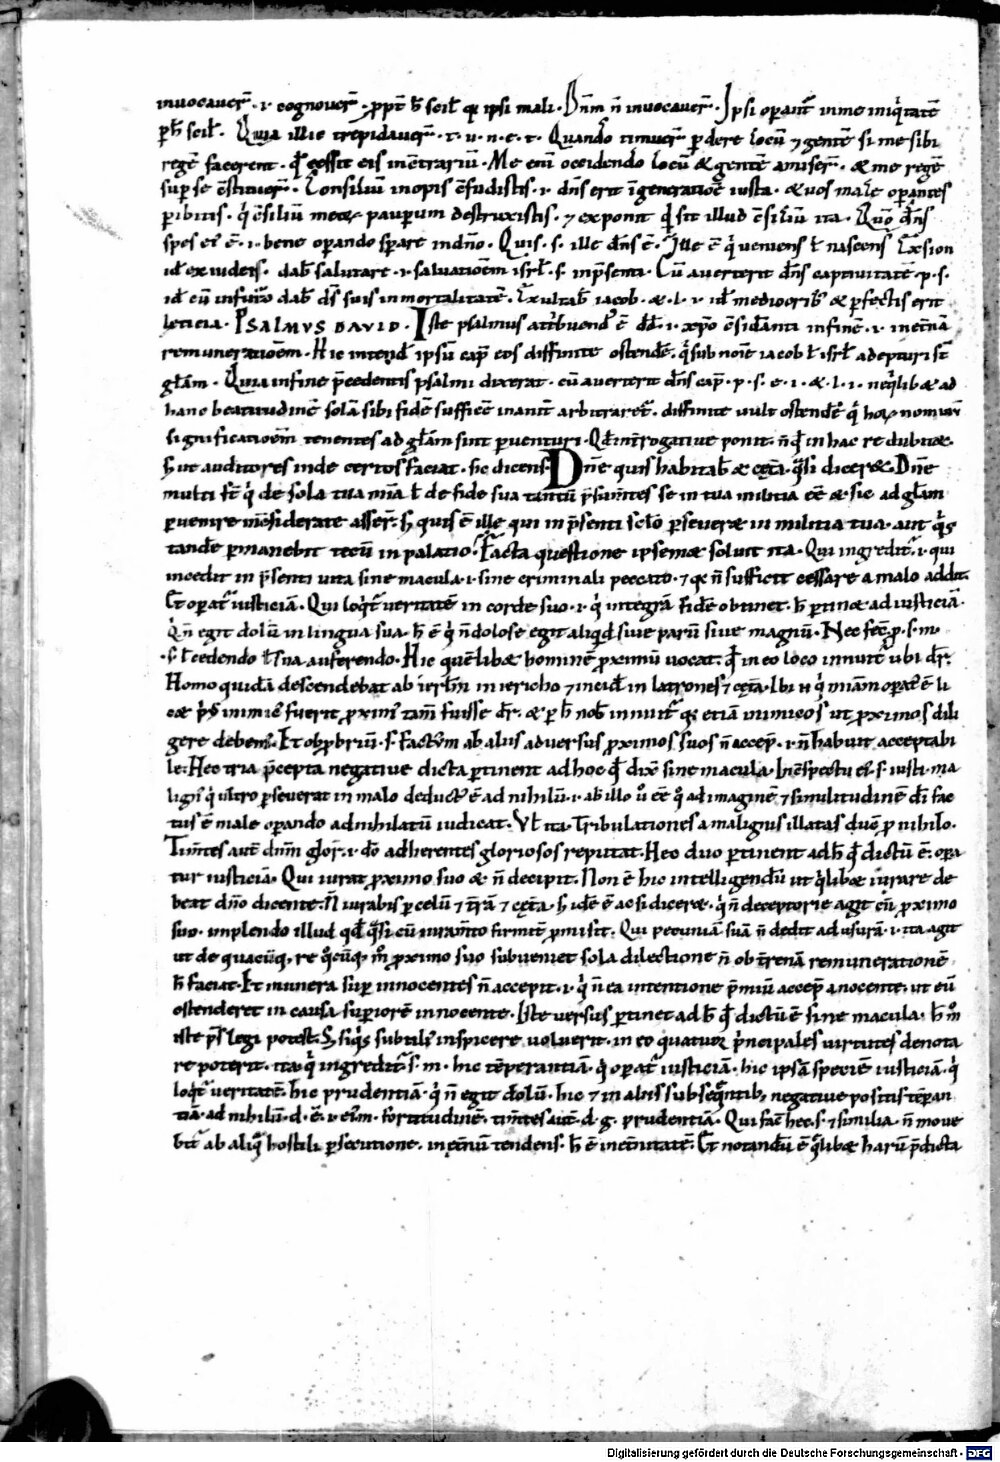 inuocauer̄ · i · cognouer̄ · ꝓpt̄ h̄ scil̄ qꝛ ipsi mali · Dn̄m n̄ inuocauer̄ · Ipsi oꝑant̄ in me iniq̇tatē
ꝑ h̄ scil̄ · Quia illic trepidauer̄ · t · u · n · e · t · Quando timuer̄ ꝑdere locū ⁊ gentē si me sibi
regē facerent · qđ cessit eis in ꝯtrariū · Me enī occidendo locū & gentē amiser̄ · & me regē
suꝑ se ꝯstituer̄ · Consiliū inopis ꝯfudistis · i · dn̄s erit ī generatiōe iusta · & uos male oꝑantes
ꝑibitis · q̇ ꝯsiliū meoꝝ pauꝑum destruxistis · ⁊ exponit qđ sit illud ꝯsiliū ita · Quō dn̄s
spes ei ē · i · bene oꝑando sꝑare in dn̄o · Quis · s · ille dn̄s ē · Ille ē q̇ ueniens ł nascens Ex sion
id ex iudeis · dab̄ salutare · i · saluatiōem isrł · s · in p̄senti · Cū auerterit dn̄s captiuitatē · p · s ·
id cū in futuro dab̄ ds̄ suis inmortalitatē · Exultab̄ iacob · & · l · i · id mediocrib; & ꝑfectis erit
leticia · PSALMVS DAVID · Iste psalmus attribuend ē dđ · i · xp̄o ꝯsidāti in finē · i · in et̄nā
remuneratiōem · Hic intend ipsū cap̄ eos diffinite ostendē · q̇ sub noīe iacob ł isrł adepturi s̄t
głam · Quia in fine p̄cedentis psalmi dixerat · cū auerterit dn̄s cap̄ · p · s · e · i · & · l · i · neq̇lib& ad
hanc beatitudinē solā sibi fidē sufficē inanit̄ arbitraret̄ · diffinite uult ostendē q̇ hoꝝ nominū
significatiōem tenentes ad głam sint ꝑuenturi · Qđ int̄rogatiue ponit · n̄ q̇ in hac re dubit& ·
s; ut auditores inde certos faciat · sic dicens · Dn̄e quis habitab̄ & cet̄a · q̄si dicer& · Dn̄e
multi st̄ q̇ de sola tua mīa ł de fide sua tantū p̄sum̄tes se in tua militia eē & sic ad głam
ꝑuenire inꝯsiderate asser̄ · s; quis ē ille qui in p̄senti scło ꝑseuer& in militia tua · aut q̇s
tandē ꝑmanebit tecū in palatio · Facta questione ipsem& soluit ita · Qui ingredit̄ · i · qui
incedit in p̄senti uita sine macula · i · sine criminali peccato · ⁊ qꝛ n̄ sufficit cessare a malo addit ·
Et oꝑat̄ iusticiā · Qui loq̇t̄ ueritatē in corde suo · i · q̇ integrā fidē obtinet · h̄ ꝑtin& ad iusticiā ·
Q̇ n̄ egit dolū in lingua sua · h̄ ē q̇ n̄ dolose egit aliqd siue paruū siue magnū · Nec fec̄ · p · s · m ·
· s · ł cedendo ł sua auferendo · Hic quēlib& hominē ꝓximū uocat · qđ in eo loco innuit̄ ubi dr̄ ·
Homo quidā descendebat ab ierłm in iericho ⁊ incidit in latrones ⁊ cet̄a · Ibi n̄ q̇ mīam oꝑat̄ ē li
c& p̄s inimic̄ fuerit ꝓxim̄ tam̄ fuisse dr̄ · & ꝑ h̄ nob̄ innuit̄ qꝛ etiā inimicos ut ꝓximos dili
gere debem̄ · Et obꝓbriū · s · factum ab aliis aduersus ꝓximos suos n̄ accep̄ · i · n̄ habuit acceptabi
le · Hec tria p̄cepta negatiue dicta ꝑtinent ad hoc qđ dix̄ sine macula · In ꝯspectu ei · s · iusti · ma
lign̄ q̇ ultro ꝑseuerat in malo deduct̄ ē ad nihilū · i · ab illo ū eē q̊ ad imaginē ⁊ similitudinē dī fac
tus ē male oꝑando adnihilatū iudicat · Vł ita · Tribulationes a malignis illatas duc̄ ꝓ nihilo ·
Tim̄tes aut̄ dn̄m glor̄ · i · dō adherentes gloriosos reputat · Hec duo ꝑtinent ad h̄ qđ dictū ē · oꝑa
tur iusticiā · Qui iurat ꝓximo suo & n̄ decipit · Non ē hic intelligendū ut q̇lib& iurare de
beat dn̄o dicente · N̄ iurabis ꝑ celū ⁊ t̄rā ⁊ cet̄a · s; idē ē ac si dicer& · q̇ n̄ deceptorie agit cū ꝓximo
suo · implendo illud qđ q̄si cū iuram̄to firmit̄ ꝓmisit · Qui pecuniā suā n̄ dedit ad usurā · i · ita agit
ut de quacūq; re q̊cūq; m̊ ꝓximo suo subueniet sola dilectione n̄ ob t̄renā remunerationē
h̄ faciat · Et munera suꝑ innocentes n̄ accepit · i · q̇ n̄ ea intentione p̄miū accep̄ a nocente · ut eū
ostenderet in causa suꝑiorē innocente · Iste uersus ꝑtinet ad h̄ qđ dictū ē sine macula · h̄ m̊
iste p̄s legi potest · S; siq̇s subtili inspicere uoluerit · in eo quatuor p̄ncipales uirtutes denota
re poterit · ita · q̇ ingredit̄ · s · m · hic tēꝑantiā · q̇ oꝑat̄ iusticiā · hic ipsā speciē iusticiā · q̇
loq̇t̄ ueritatē · hic prudentiā · q̇ n̄ egit dolū · hic ⁊ in aliis subseq̄ntib; negatiue positis tēꝑan
tiā · ad nihilū · d · ē · i · ei · m · fortitudinē · tim̄tes aut̄ · d · g · prudentiā · Qui fac̄ hec · s · ⁊ similia · n̄ moue
bit̄ ab aliq̇ hostili ꝑsecutione · in et̄nū tendens · h̄ ē in et̄nitatē · Et notandū ē q̇lib& harū p̄dicta
Digitalisierung gefördert durch die Deutsche Forschungsgemeinschaft - DFG